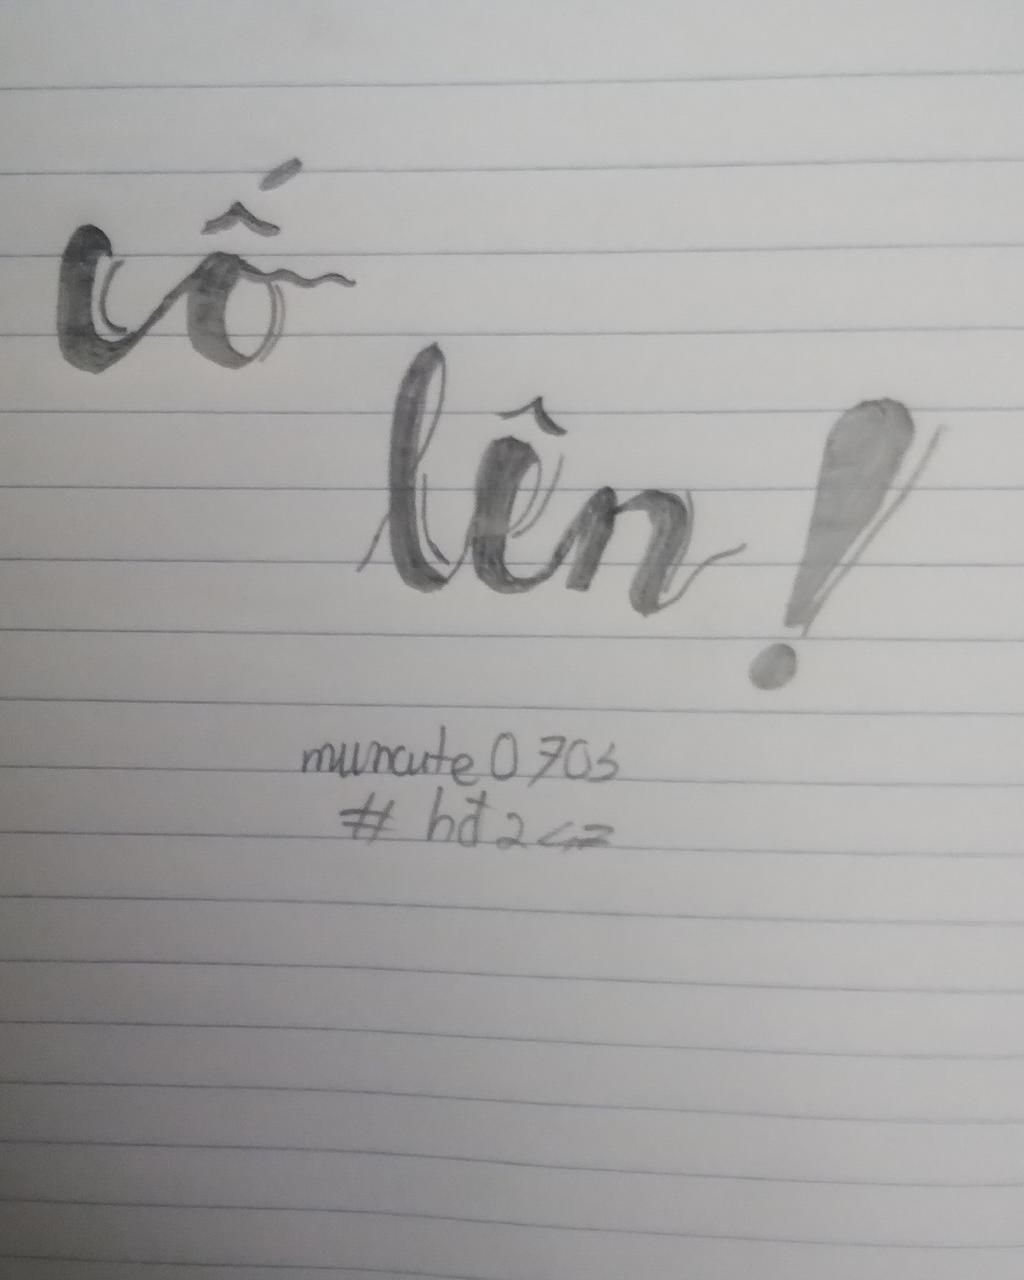 cố
lên!
muncute0703
# hđ247